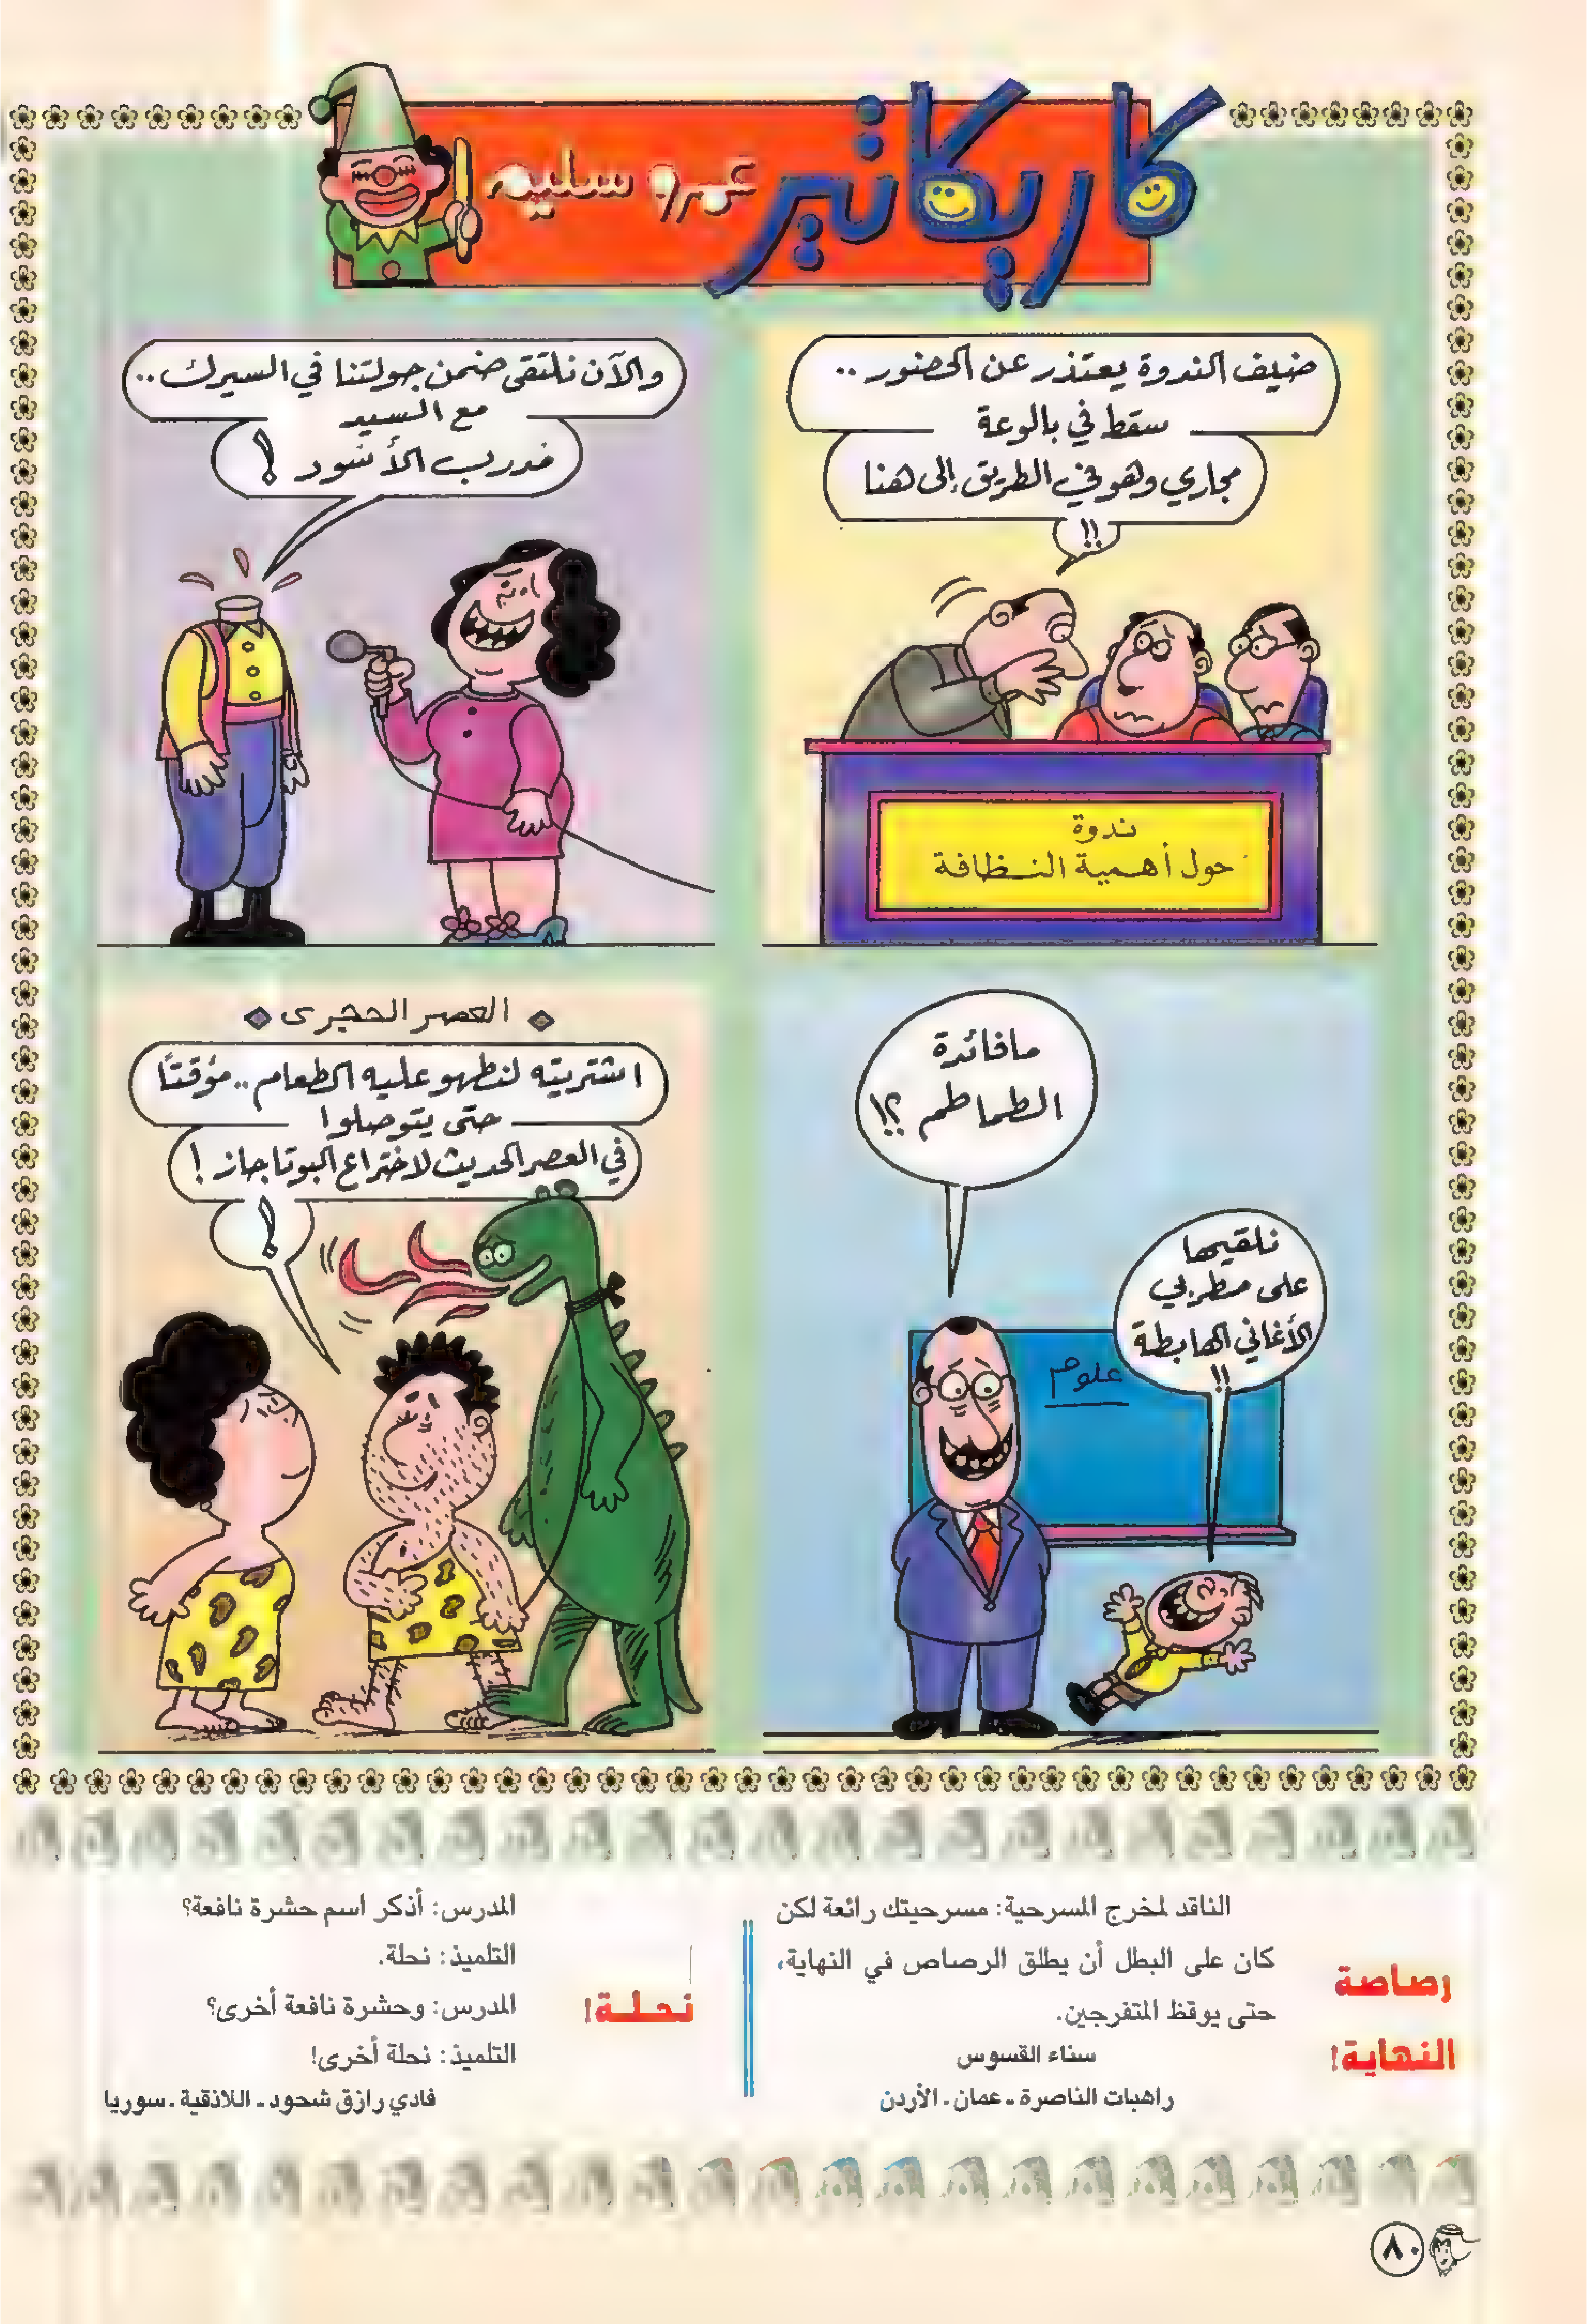 كاريكاتير
عمرو سليم
ضيف الندوة يعتذر عن الحضور ..
سقط في بالوعة
مجاري وهو في الطريق إلى هنا
!!
ندوة
حول أهمية النظافة
والآن نلتقى ضمن جولتنا في السيرك ..
مع السيد
مدرب الأسود !
ما فائدة
الطماطم ؟!
نلقيها
على مطربي
الأغاني الهابطة
!!
علوم
العصر الحجرى
اشتريته لنطهو عليه الطعام .. مؤقتاً
حتى يتوصلوا
في العصر الحديث لاختراع البوتاجاز !
!
رصاصة
النهاية!
الناقد لمخرج المسرحية: مسرحيتك رائعة لكن
كان على البطل أن يطلق الرصاص في النهاية،
حتى يوقظ المتفرجين.
سناء القسوس
راهبات الناصرة ـ عمان ـ الأردن
نحلة!
المدرس: أذكر اسم حشرة نافعة؟
التلميذ: نحلة.
المدرس: وحشرة نافعة أخرى؟
التلميذ: نحلة أخرى!
فادي رازق شحود ـ اللاذقية ـ سوريا
٨٠